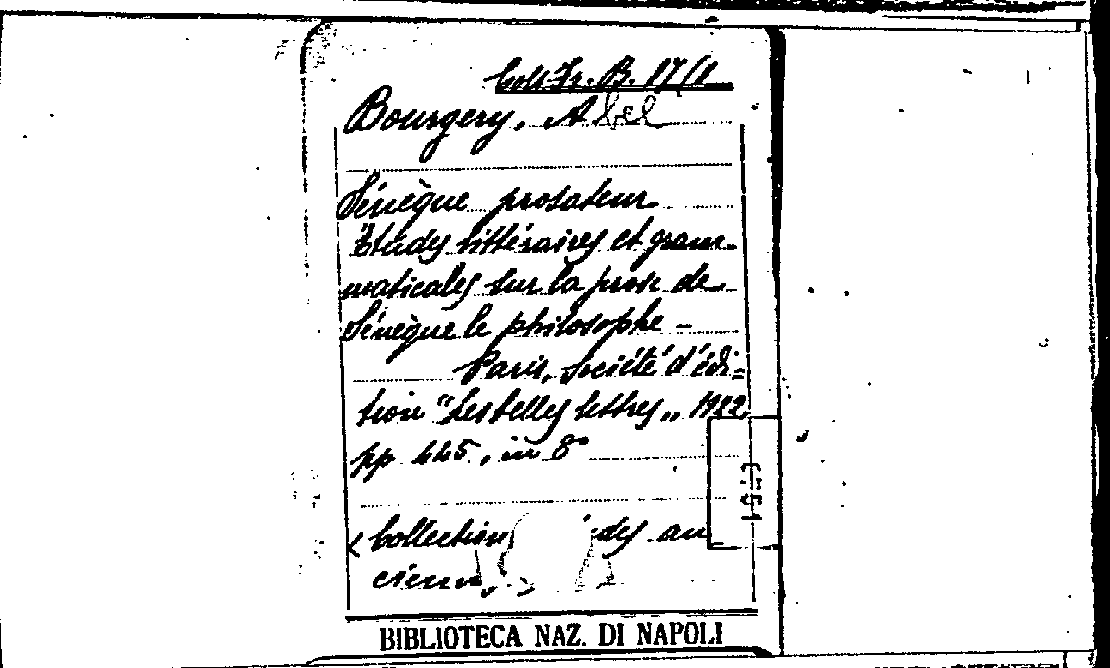 Coll. Fr. B. 17/1
Bourgery, Abel
Sénèque prosateur
Études littéraires et gram-
maticales sur la prose de
Sénèque le philosophe -
Paris, Société d'édi=
tion "Les belles lettres„ 1922
pp 445, in 8°
< Collection des an
ciens, >
BIBLIOTECA NAZ. DI NAPOLI